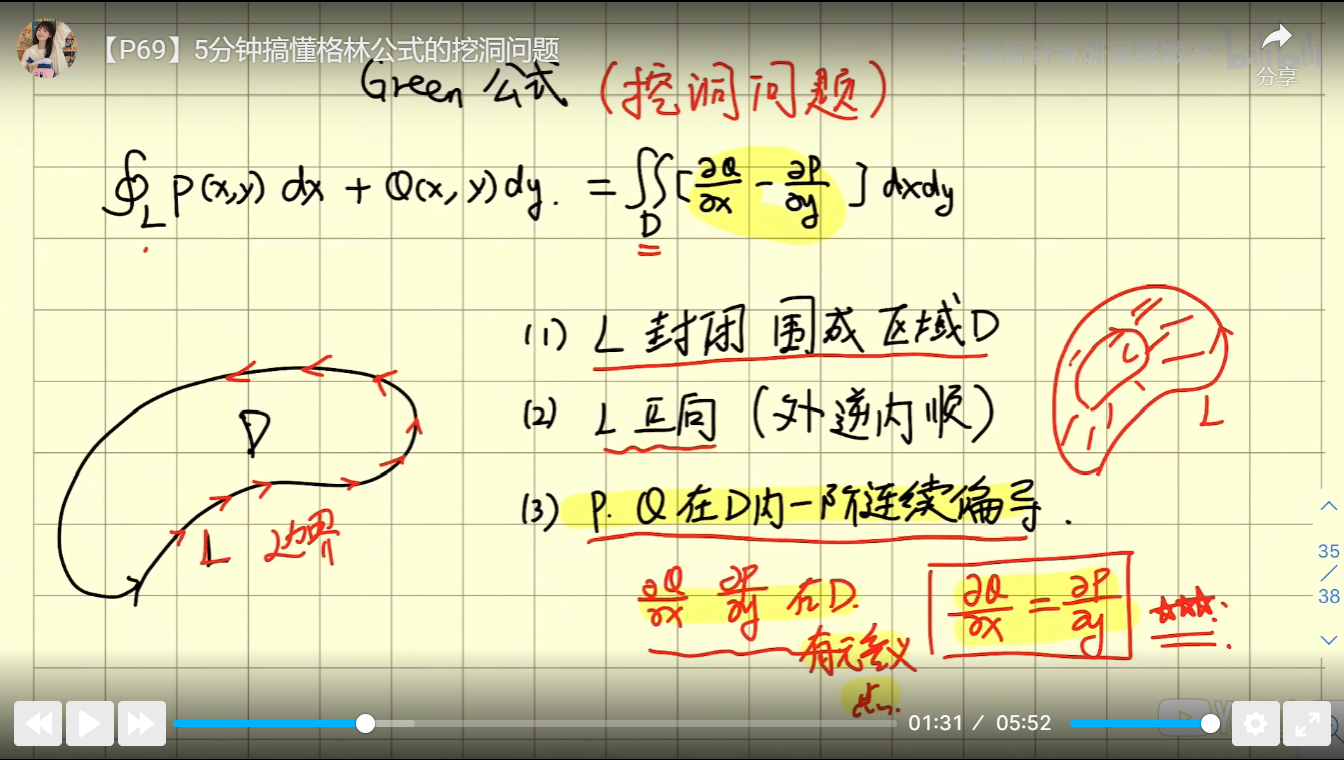 【P69】5分钟搞懂格林公式的挖洞问题
分享
Green 公式 (挖洞问题)
∮_L P(x,y) dx + Q(x,y) dy. = ∬_D [∂Q/∂x - ∂P/∂y] dxdy
(1) L 封闭 围成 区域D
(2) L 正向 (外逆内顺)
(3) P. Q 在D内一阶连续偏导.
D
L 边界
L
∂Q/∂x ∂P/∂y 在D.
有无意义
点.
∂Q/∂x = ∂P/∂y
35
/
38
01:31 / 05:52